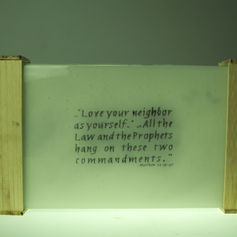 ..."Love your neighbor
as yourself." ..All the
Law and the Prophets
hang on these two
commandments."